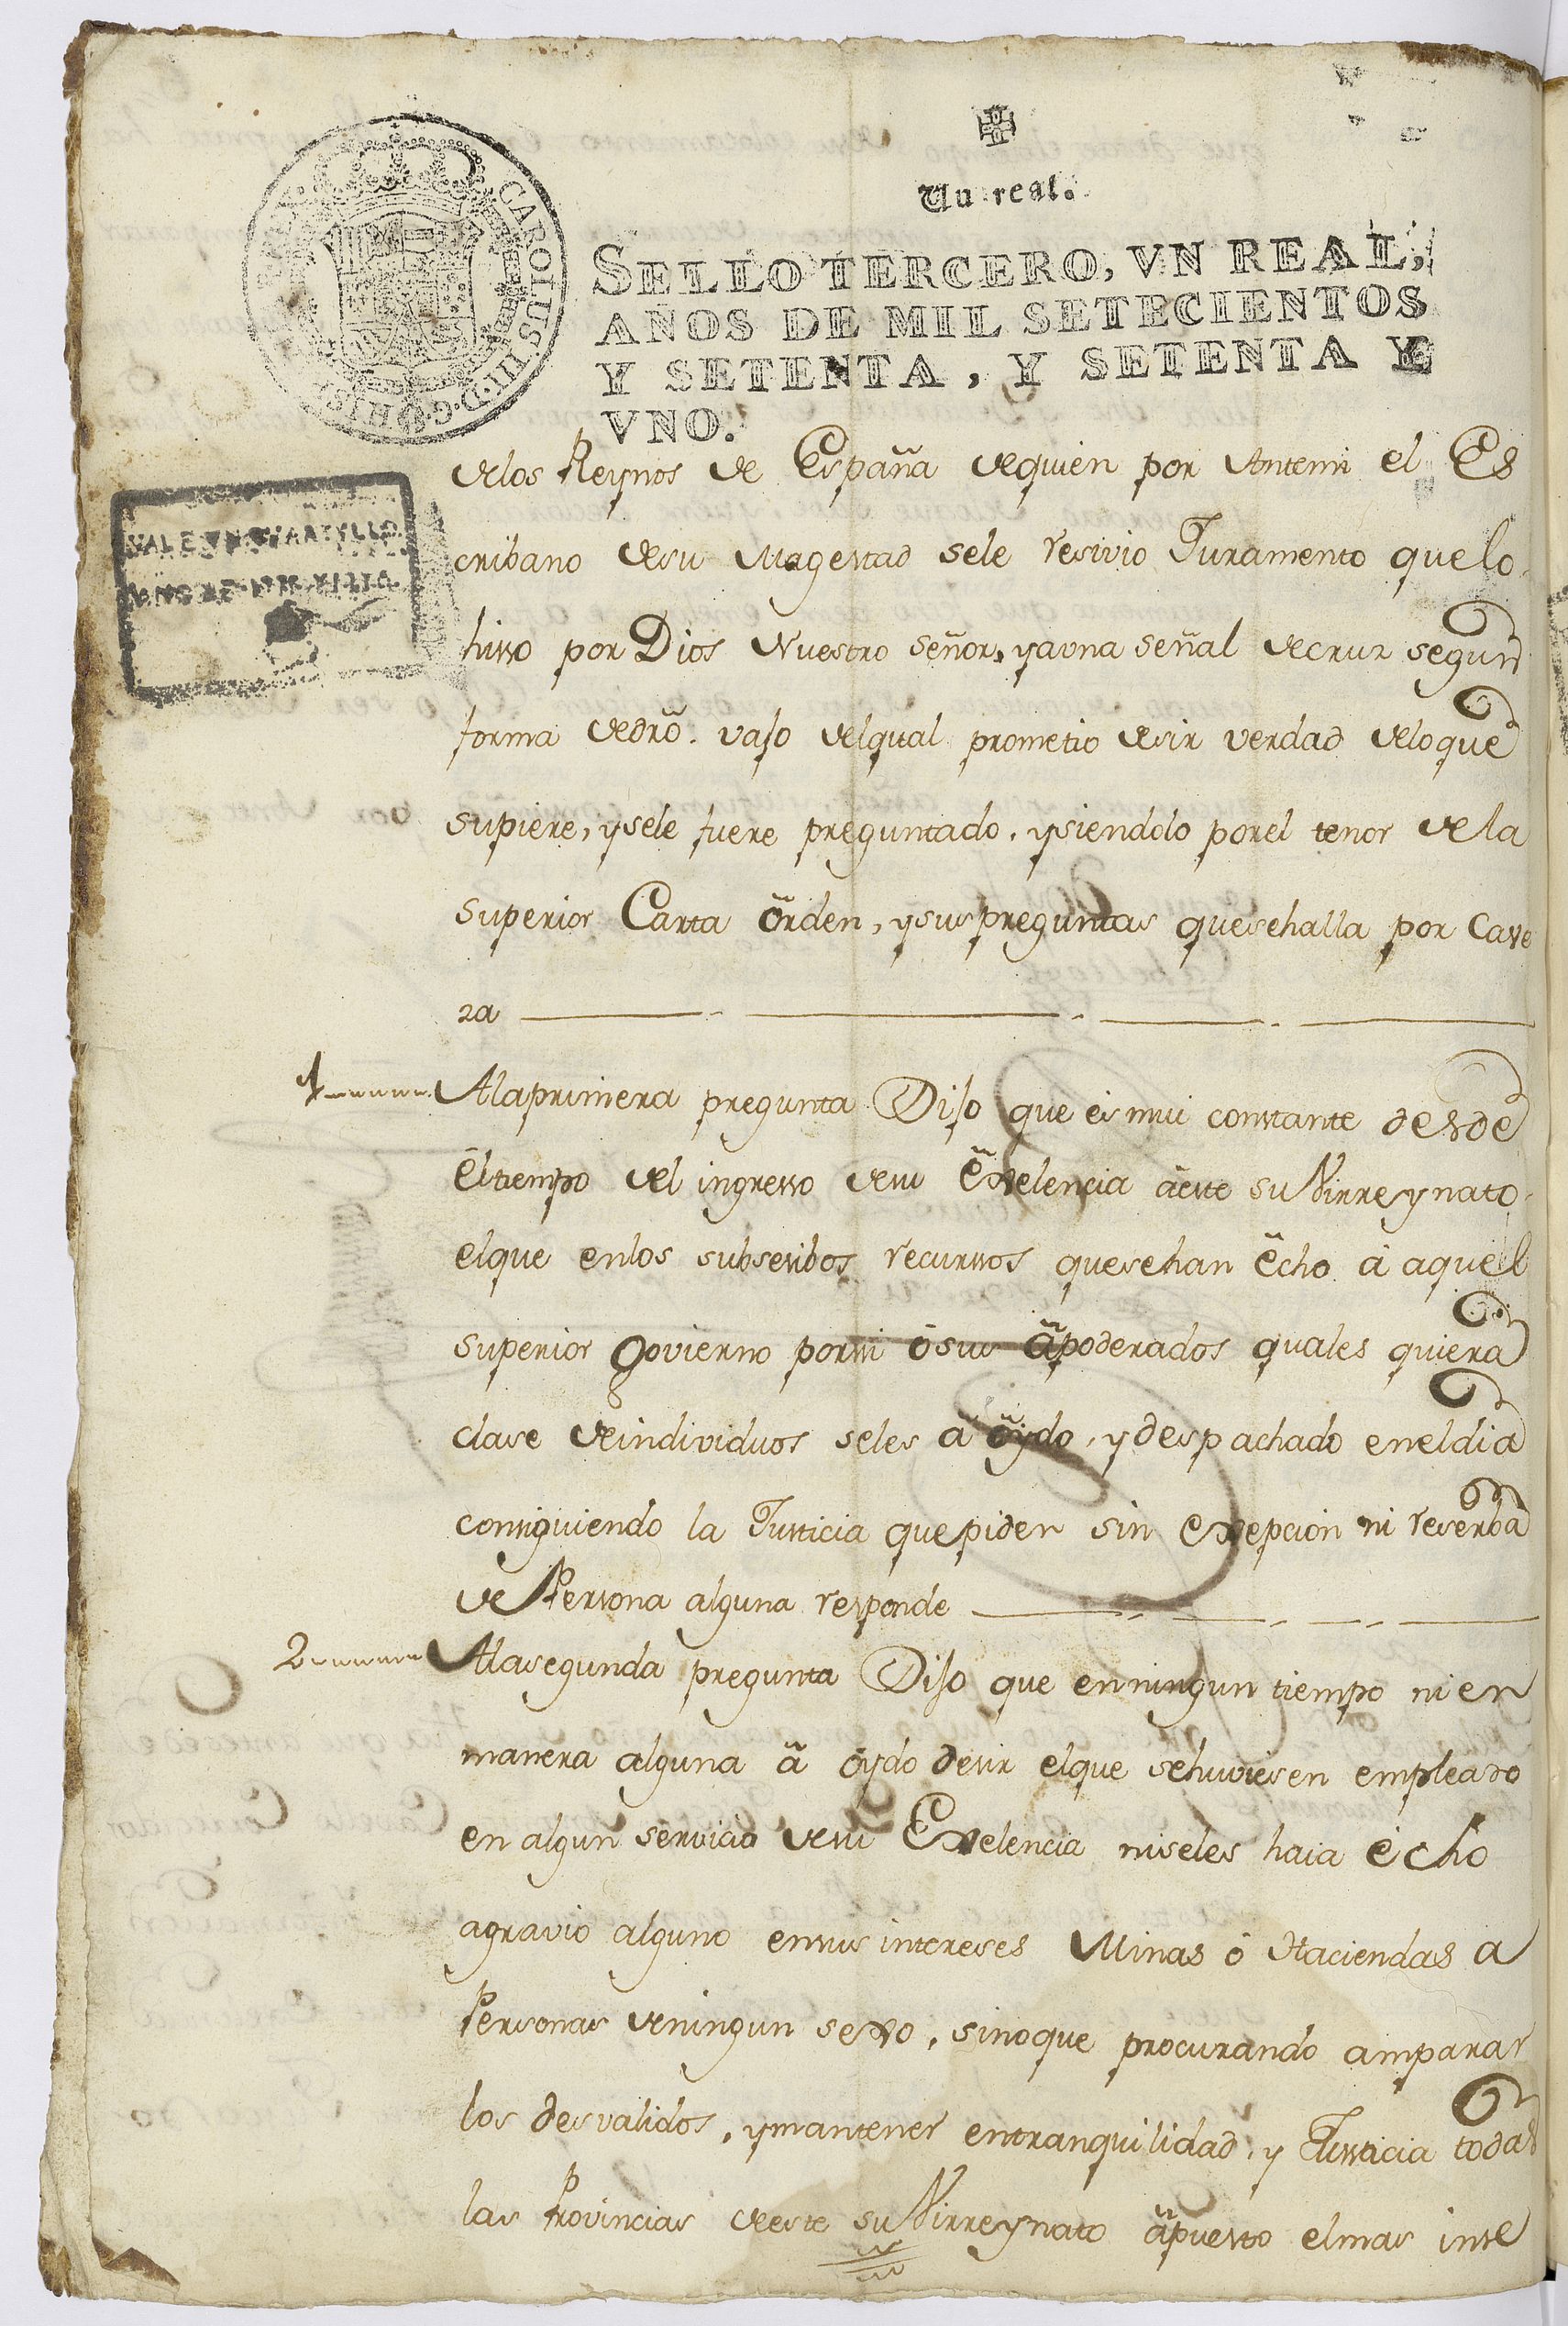 Un real.
SELLO TERCERO, VN REAL,
AÑOS DE MIL SETECIENTOS
Y SETENTA, Y SETENTA Y
VNO.
CAROLUS III D G HISP
VALE
delos Reynos de España dequien por Antemi el Es
cribano desu Magestad sele resivio Juramento quelo
hisso por Dios Nuestro señor, yauna señal decruz segun
forma dedrõ. vajo delqual prometio desir verdad deloque
supiere, ysele fuere preguntado, ysiendolo porel tenor dela
superior Carta orden, ysuspreguntas quesehalla por Cave
za
1 Alaprimera pregunta Dijo que es mui constante desde
eltiempo del ingresso desu Exelencia aeste su Virreynato
elque enlos subsesibos recurssos quesehan echo á aquel
superior Govierno porssi ó sus apoderados quales quiera
clase deindividuos seles a oydo, y despachado eneldia
consiguiendo la Justicia quepiden sin exepcion ni reserba
de Perssona alguna responde
2 Alasegunda pregunta Dijo que enningun tiempo ni en
manera alguna a oydo desir elque sehuviesen empleado
en algun servicio desu Exelencia niseles haia echo
agravio alguno ensus intereses Minas ó Haciendas a
Personas deningun sexo, sinoque procurando amparar
los desvalidos, ymantener entranquilidad, y Justicia todas
las Provincias deeste su Virreynato apuesto elmas inse